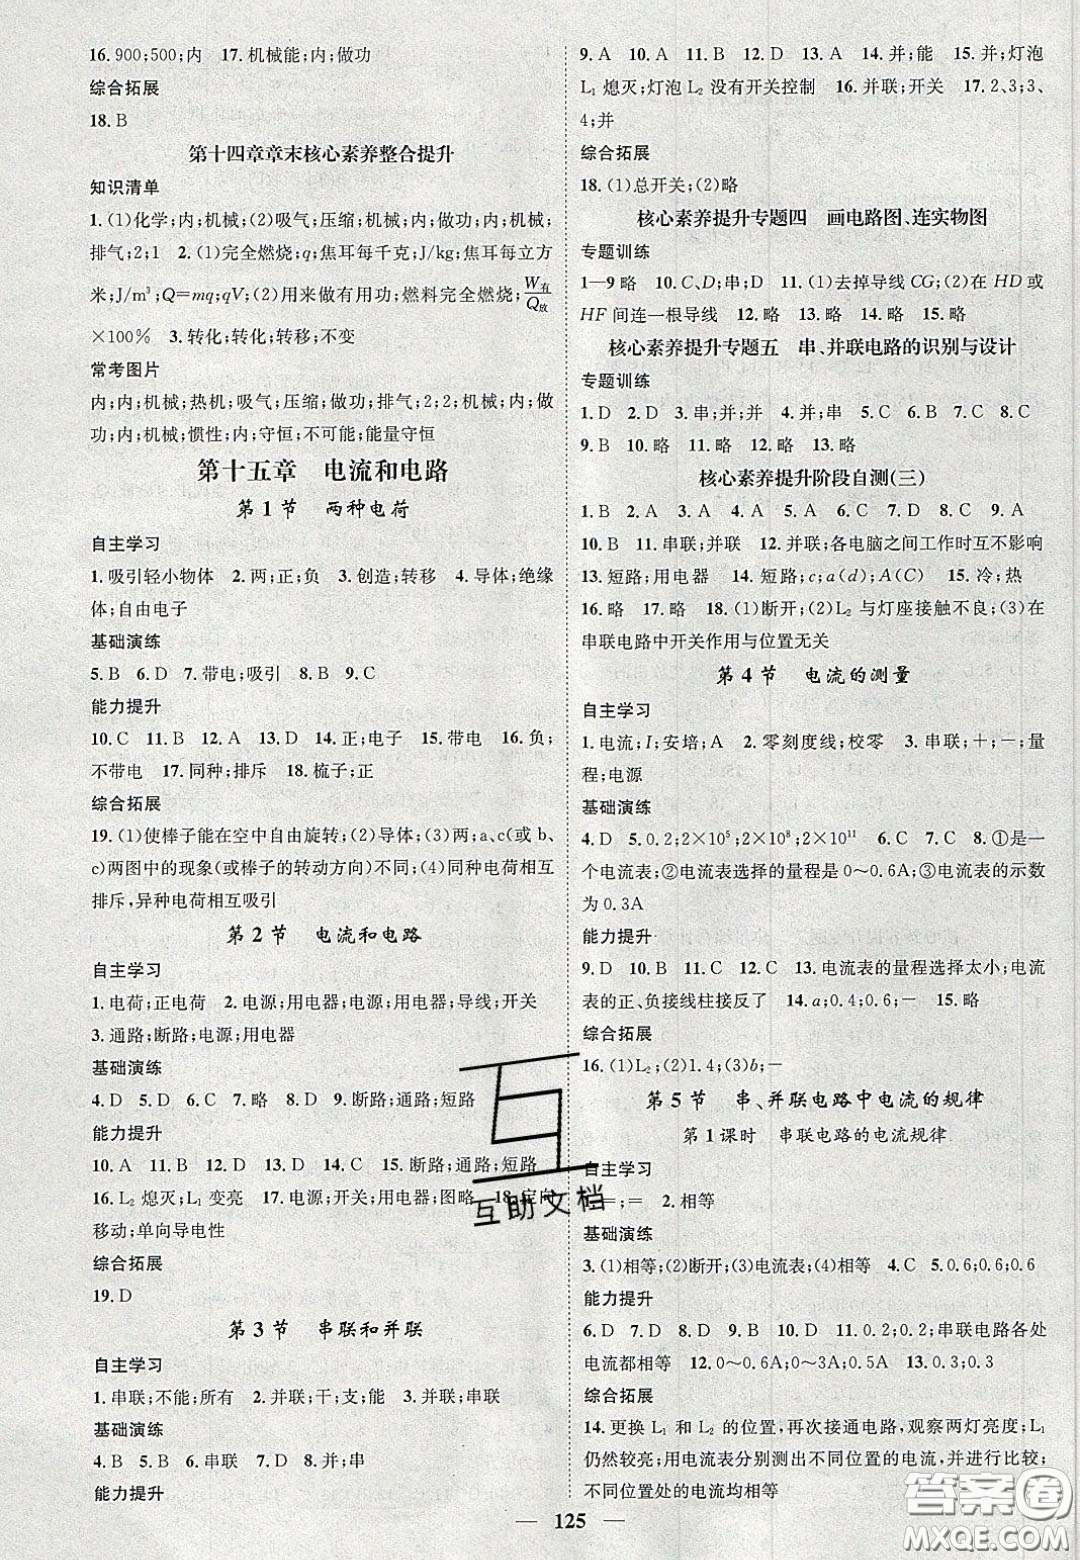 16. 900;500;内　17. 机械能;内;做功
综合拓展
18. B
第十四章章末核心素养整合提升
知识清单
1. (1)化学;内;机械;(2)吸气;压缩;机械;内;做功;内;机械;
排气;2;1　2. (1)完全燃烧;q;焦耳每千克;J/kg;焦耳每立方
米;J/m³;Q=mq;qV;(2)用来做有用功;燃料完全燃烧;W有/Q放
×100%　3. 转化;转化;转移;不变
常考图片
内;内;机械;热机;吸气;压缩;做功;排气;2;2;机械;内;做
功;内;机械;惯性;内;守恒;不可能;能量守恒
第十五章　电流和电路
第1节　两种电荷
自主学习
1. 吸引轻小物体　2. 两;正;负　3. 创造;转移　4. 导体;绝缘
体;自由电子
基础演练
5. B　6. D　7. 带电;吸引　8. B　9. C
能力提升
10. C　11. B　12. A　13. D　14. 正;电子　15. 带电　16. 负;
不带电　17. 同种;排斥　18. 梳子;正
综合拓展
19. (1)使棒子能在空中自由旋转;(2)导体;(3)两;a、c(或b、
c)两图中的现象(或棒子的转动方向)不同;(4)同种电荷相互
排斥,异种电荷相互吸引
第2节　电流和电路
自主学习
1. 电荷;正电荷　2. 电源;用电器;电源;用电器;导线;开关
3. 通路;断路;电源;用电器
基础演练
4. D　5. D　6. C　7. 略　8. D　9. 断路;通路;短路
能力提升
10. A　11. B　12. B　13. D　14. C　15. 断路;通路;短路
16. L₂熄灭;L₁变亮　17. 电源;开关;用电器;图略　18. 定向
移动;单向导电性
综合拓展
19. D
第3节　串联和并联
自主学习
1. 串联;不能;所有　2. 并联;干;支;能　3. 并联;串联
基础演练
4. B　5. B　6. 串联　7. D　8. 并;串
能力提升
9. A　10. A　11. B　12. D　13. A　14. 并;能　15. 并;灯泡
L₁熄灭;灯泡L₂没有开关控制　16. 并联;开关　17. 2;3;3、
4;并
综合拓展
18. (1)总开关;(2)略
核心素养提升专题四　画电路图、连实物图
专题训练
1—9略　10. C、D;串;D　11. (1)去掉导线CG;(2)在HD或
HF间连一根导线　12. 略　13. 略　14. 略　15. 略
核心素养提升专题五　串、并联电路的识别与设计
专题训练
1. D　2. D　3. 串;并;并　4. 并;串　5. C　6. C　7. B　8. C
9. B　10. 略　11. 略　12. D
核心素养提升阶段自测(三)
1. B　2. D　3. A　4. A　5. A　6. B　7. D　8. C　9. A
10. B　11. 串联;并联　12. 并联;各电脑之间工作时互不影响
13. 短路;用电器　14. 短路;c;a(d);A(C)　15. 冷;热
16. 略　17. 略　18. (1)断开;(2)L₂与灯座接触不良;(3)在
串联电路中开关作用与位置无关
第4节　电流的测量
自主学习
1. 电流;I;安培;A　2. 零刻度线;校零　3. 串联;＋;－;量
程;电源
基础演练
4. D　5. 0.2;2×10⁵;2×10⁸;2×10¹¹　6. C　7. C　8. ①是一
个电流表;②电流表选择的量程是0～0.6A;③电流表的示数
为0.3A
能力提升
9. D　10. B　11. C　12. D　13. 电流表的量程选择太小;电流
表的正、负接线柱接反了　14. a;0.4;0.6;－　15. 略
综合拓展
16. (1)L₂;(2)1.4;(3)b;－
第5节　串、并联电路中电流的规律
第1课时　串联电路的电流规律
自主学习
＝;＝　2. 相等
基础演练
3. (1)相等;(2)断开;(3)电流表;(4)相等　4. C　5. 0.6;0.6;0.6
能力提升
6. D　7. D　8. C　9. B　10. D　11. 0.2;0.2;串联电路各处
电流都相等　12. 0～0.6A;0～3A;0.5A　13. 0.3;0.3
综合拓展
14. 更换L₁和L₂的位置,再次接通电路,观察两灯亮度;L₁
仍然较亮;用电流表分别测出不同位置的电流,并进行比较;
不同位置处的电流均相等
互助文档
答案圈
MXQE.COM
125